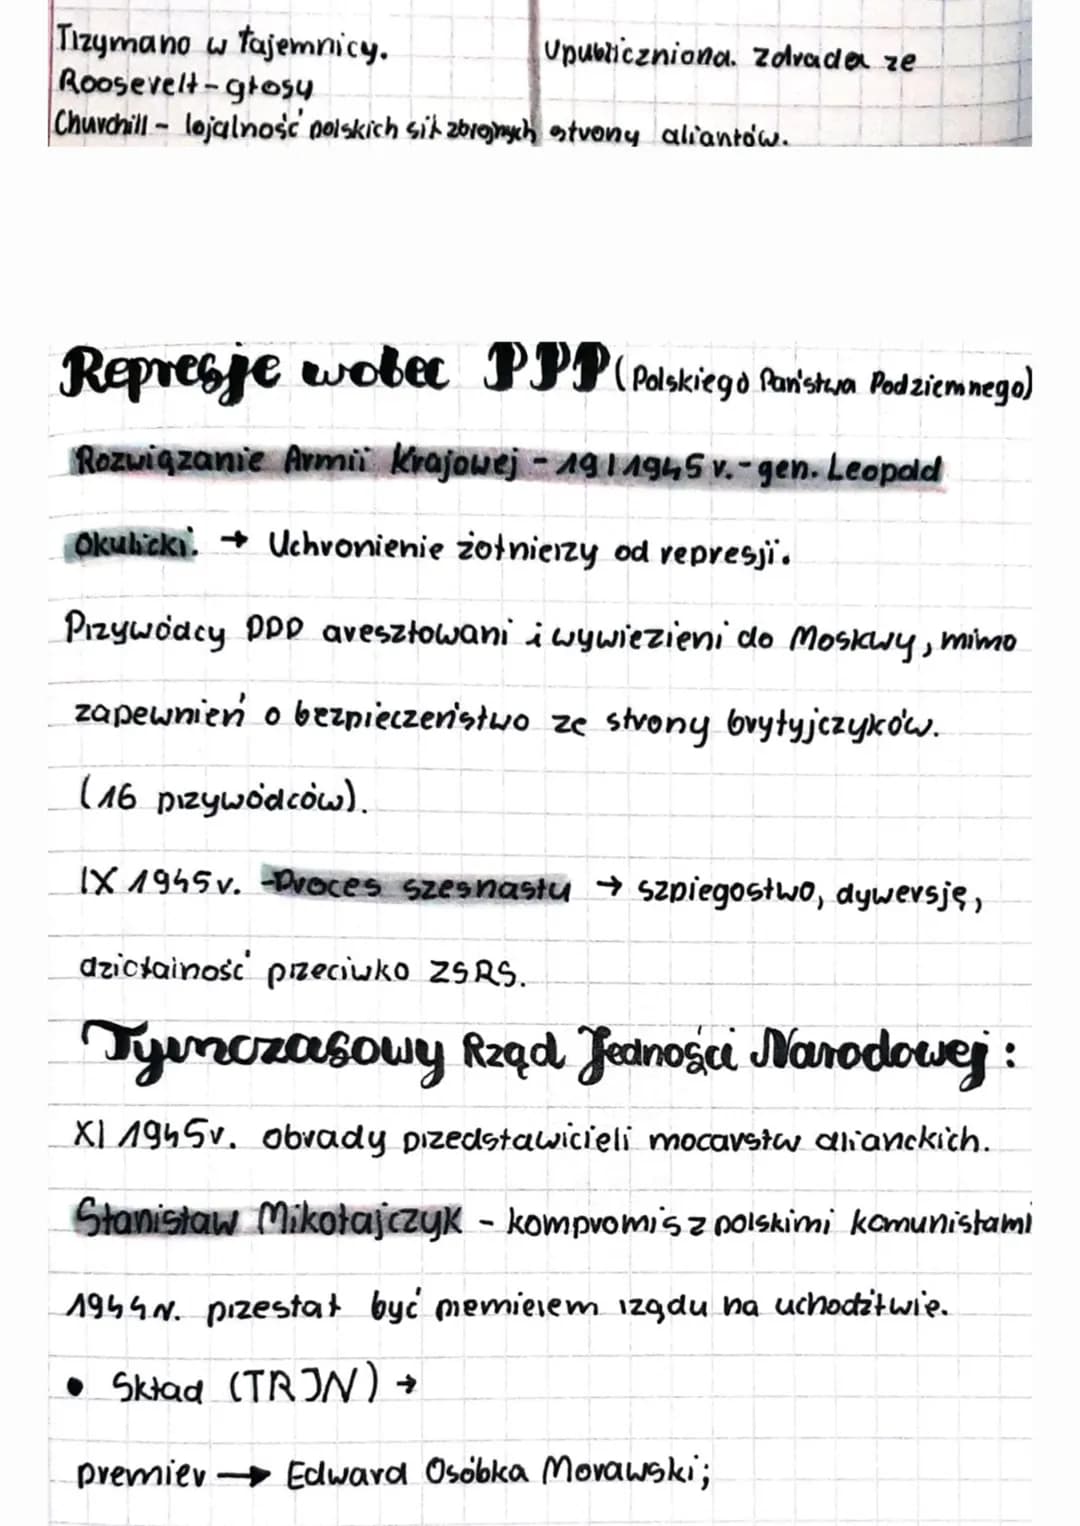 Trzymano w tajemnicy.
Roosevelt - głosy
Churchill - lojalność polskich sił zbrojnych
Upubliczniona. Zdrada ze
strony aliantów.
Represje wobec PPP (Polskiego Państwa Podziemnego)
Rozwiązanie Armii Krajowej - 19 I 1945 r. - gen. Leopold
Okulicki. → Uchronienie żołnierzy od represji.
Przywódcy PPP aresztowani i wywiezieni do Moskwy, mimo
zapewnień o bezpieczeństwo ze strony brytyjczyków.
(16 przywódców).
IX 1945 r. - Proces szesnastu → szpiegostwo, dywersję,
działalność przeciwko ZSRS.
Tymczasowy Rząd Jedności Narodowej:
XI 1945 r. obrady przedstawicieli mocarstw alianckich.
Stanisław Mikołajczyk - kompromis z polskimi komunistami
1944 r. przestał być premierem rządu na uchodźtwie.
• Skład (TRJN) →
premier → Edward Osóbka Morawski;